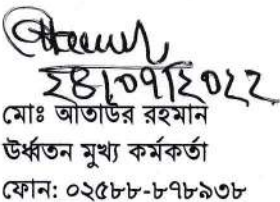 ২৪/০৭/২০২২
মোঃ আতাউর রহমান
উর্ধ্বতন মুখ্য কর্মকর্তা
ফোন: ০২৫৮৮-৮৭৮৯৩৮